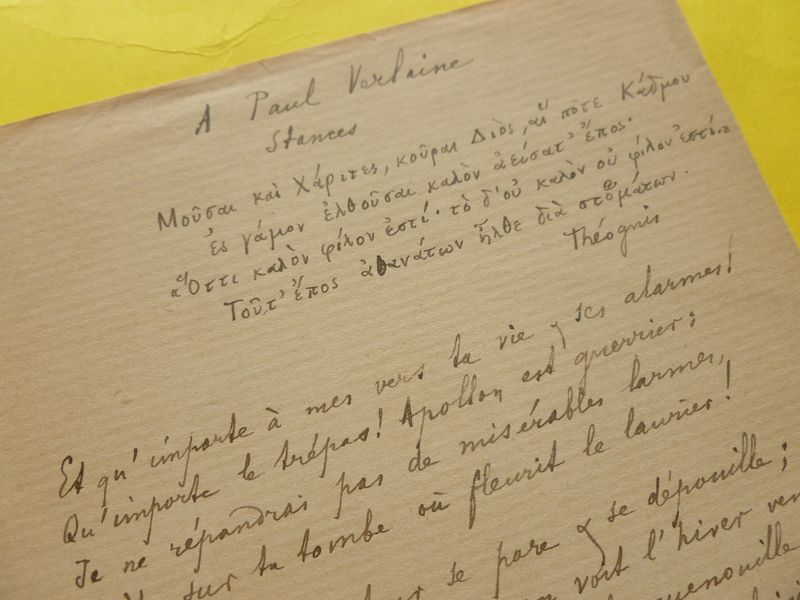 A Paul Verlaine
Stances
Μοῦσαι καὶ Χάριτες, κοῦραι Διὸς, αἵ ποτε Κάδμου
ἐς γάμον ἐλθοῦσαι καλὸν ἀείσατ' ἔπος·
"Ὅττι καλὸν φίλον ἐστί· τὸ δ' οὐ καλὸν οὐ φίλον ἐστί."
Τοῦτ' ἔπος ἀθανάτων ἦλθε διὰ στομάτων.
Théognis
Et qu'importe à mes vers ta vie & ses alarmes!
Qu'importe le trépas! Apollon est guerrier:
Je ne répandrai pas de misérables larmes,
sur ta tombe où fleurit le laurier!
se pare & se dépouille;
voit l'hiver